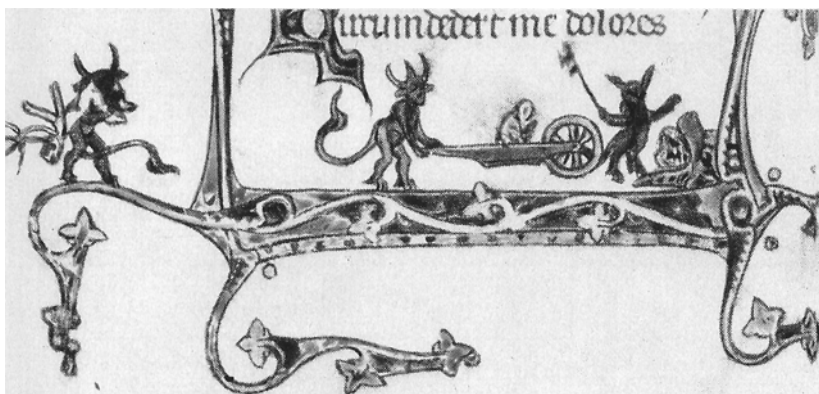 Circumdedert me dolores